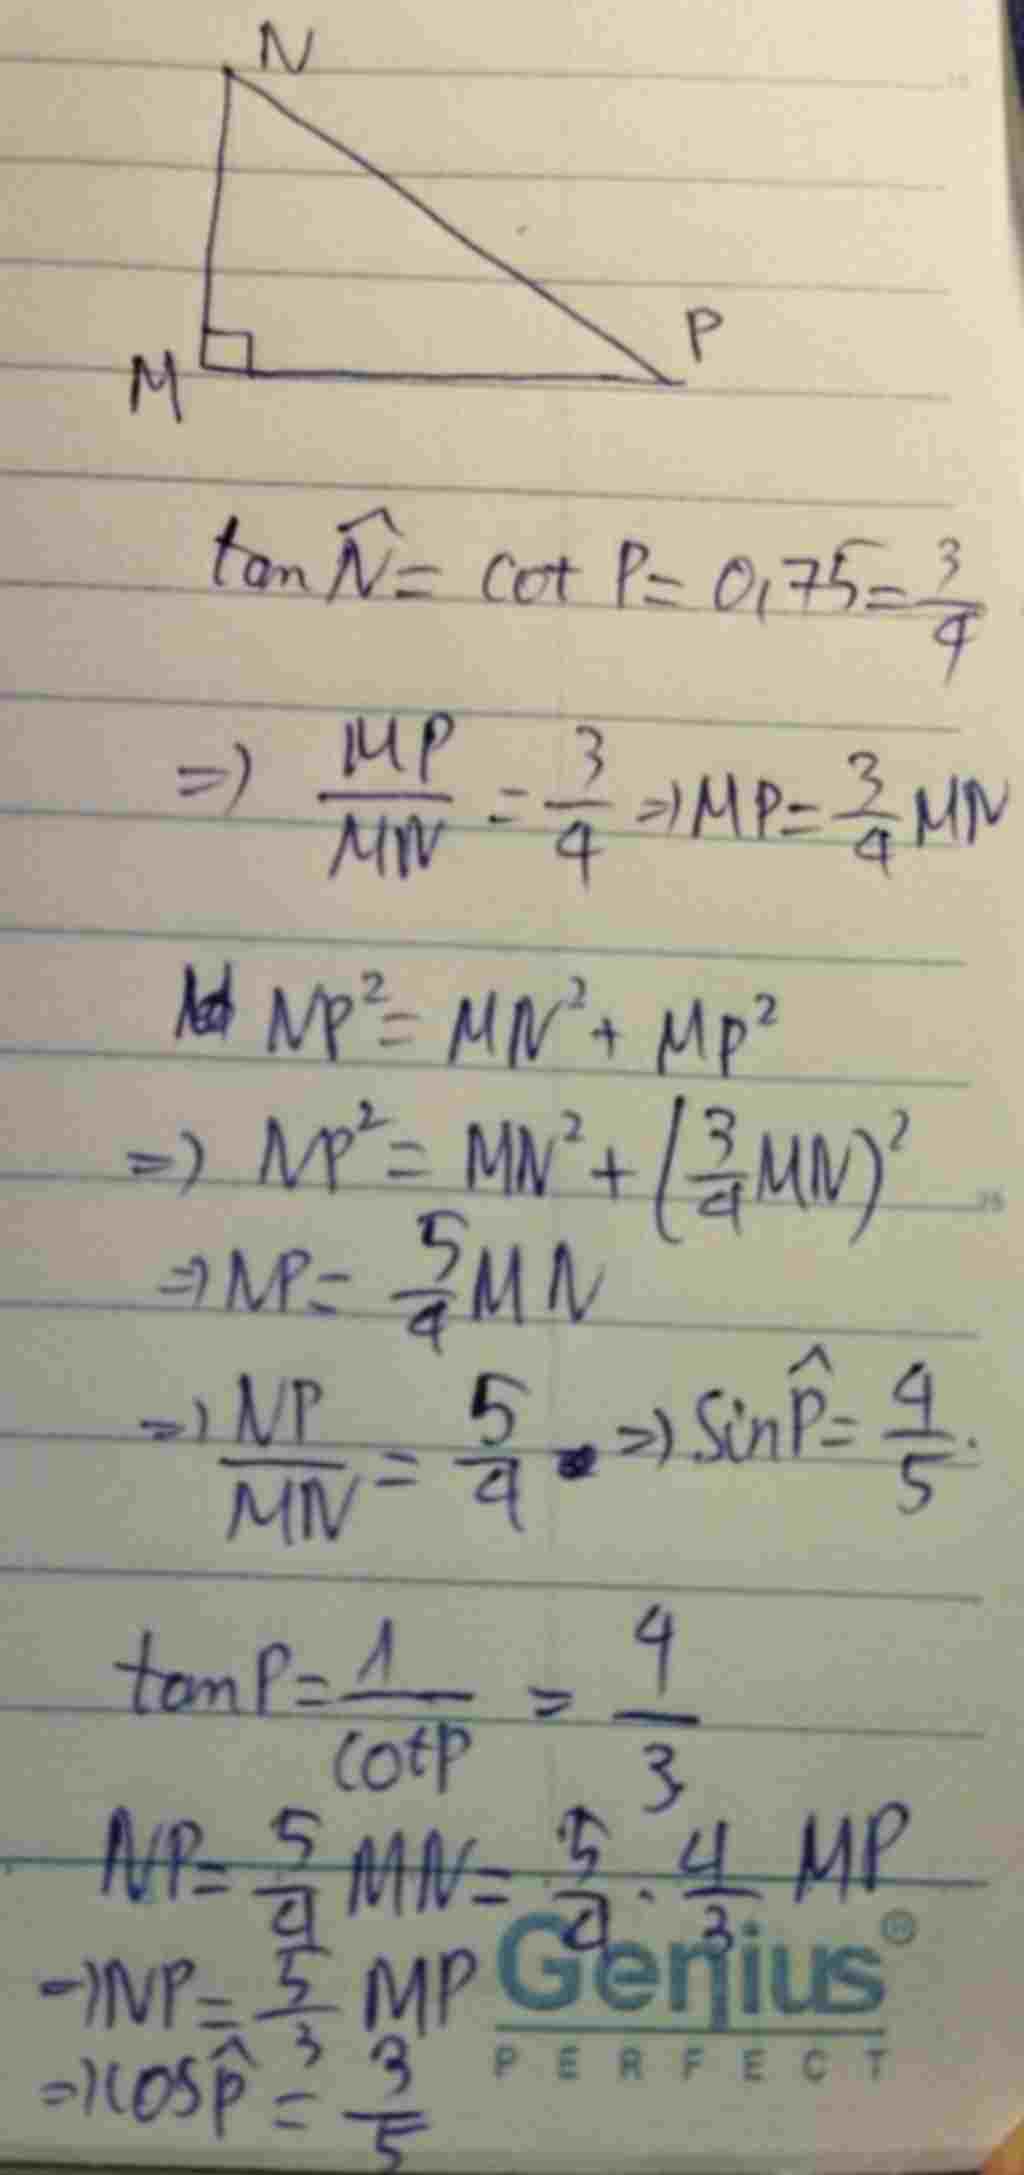 N
P
M
tan N̂ = cot P = 0,75 = 3/4
=> MP/MN = 3/4 => MP = 3/4 MN
NP² = MN² + MP²
=> NP² = MN² + (3/4 MN)²
=> NP = 5/4 MN
=> NP/MN = 5/4 => sin P̂ = 4/5.
tan P = 1/cot P = 4/3
NP = 5/4 MN = 5/4 . 4/3 MP
=> NP = 5/3 MP
=> cos P̂ = 3/5
Genius®
PERFECT